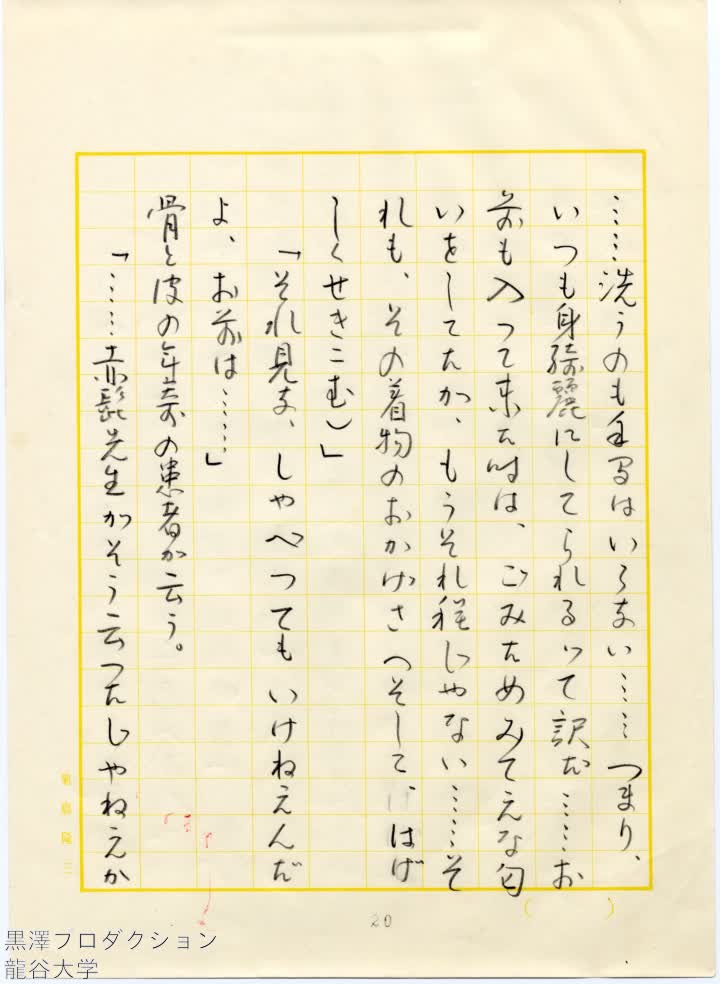 ……洗うのも手間はいらない……つまり、
いつも身綺麗にしてられるって訳だ……お
前も入って来た時は、ごみためみてえな匂
いをしてたが、もうそれ程じゃない……そ
れも、その着物のおかげさ（そして、はげ
しくせきこむ）」
「それ見な、しゃべってもいけねえんだ
よ、お前は……」
骨と皮の年寄の患者が云う。
「……赤髭先生がそう云ったじゃねえか
20
黒澤プロダクション
龍谷大学